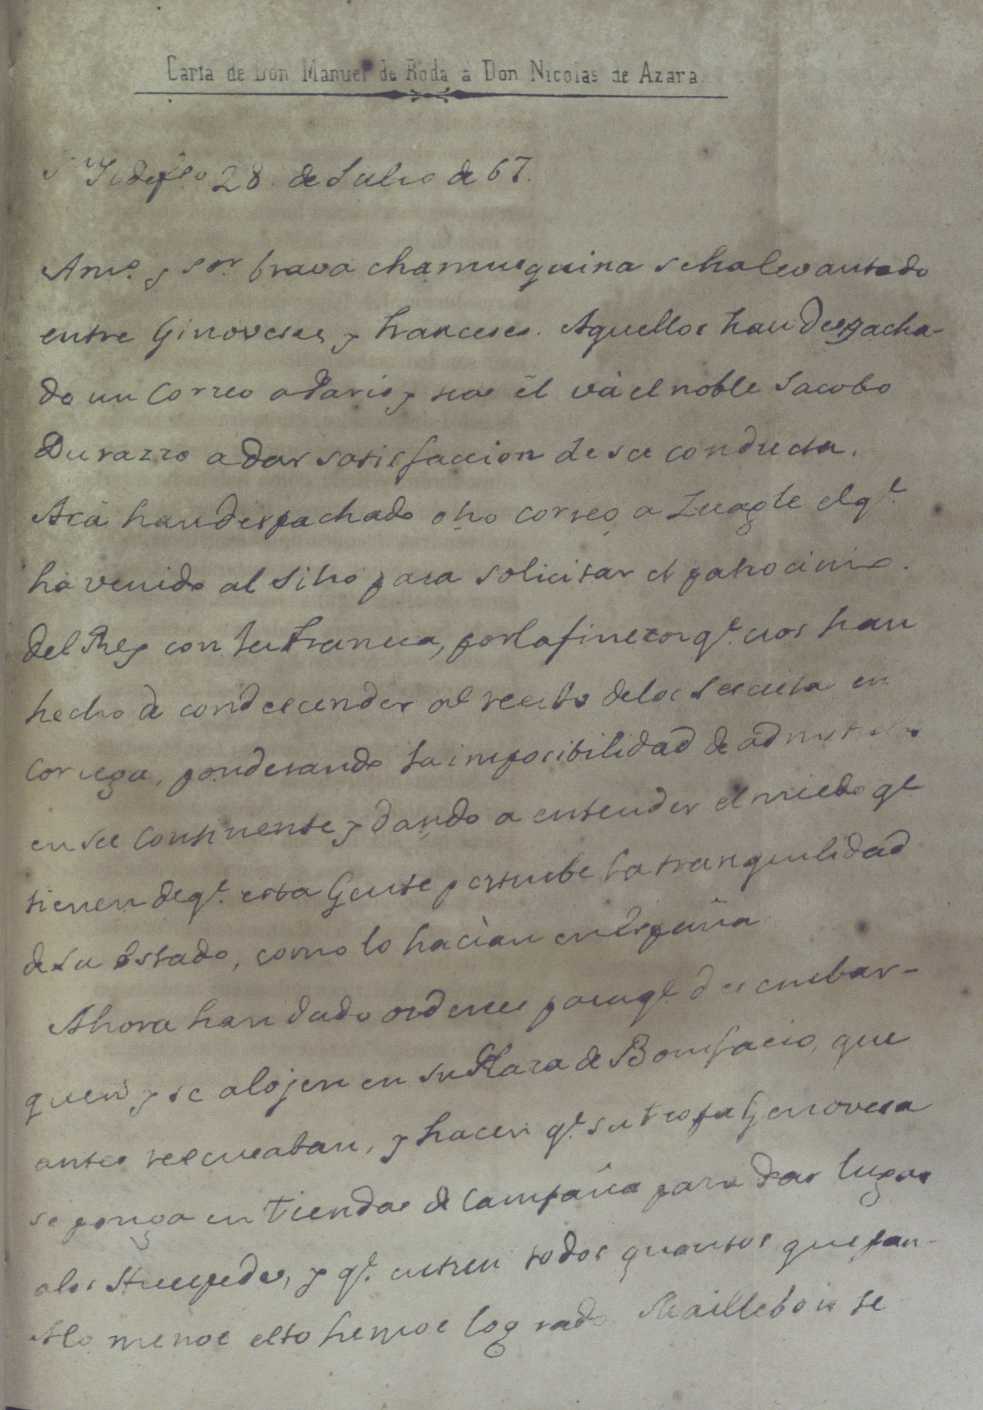 Carta de Don Manuel de Roda a Don Nicolas de Azara
Sn Yldefso 28 de Julio de 67.
Amo. y Sor. brava chamusquina se ha levantado
entre Ginoveses y Franceses. Aquellos han despacha-
do un Correo a Paris y tras él vá el noble Jacobo
Durazzo a dar satisfaccion de su conducta.
Acá han despachado otro correo a Zuagle el qe.
ha venido al Sitio para solicitar el patrocinio
del Rey con la Francia, por la fineza qe. nos han
hecho de condescender al recibo de los Jesuitas en
Corcega, ponderando la imposibilidad de admitirlos
en su continente y dando a entender el miedo qe.
tienen de qe. esta Gente perturbe la tranquilidad
de su Estado, como lo hacian en España
Ahora han dado ordenes para qe. desembar-
quen y se alojen en su Plaza de Bonifacio, que
antes reservaban, y hacen qe. su tropa Genovesa
se ponga en tiendas de Campaña para dar lugar
a los Huespedes, y qe. entren todos quantos quepan
A lo menos esto hemos logrado Maillebois se